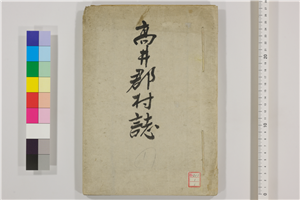 高井郡村誌